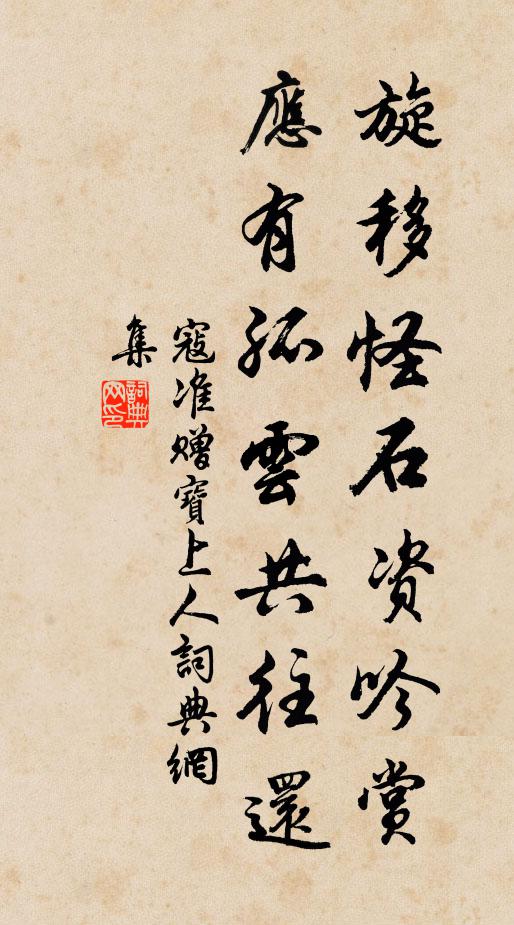 旋移怪石資吟賞
應有孤雲共往還
寇准贈寶上人詞典網
集
詞典
网印